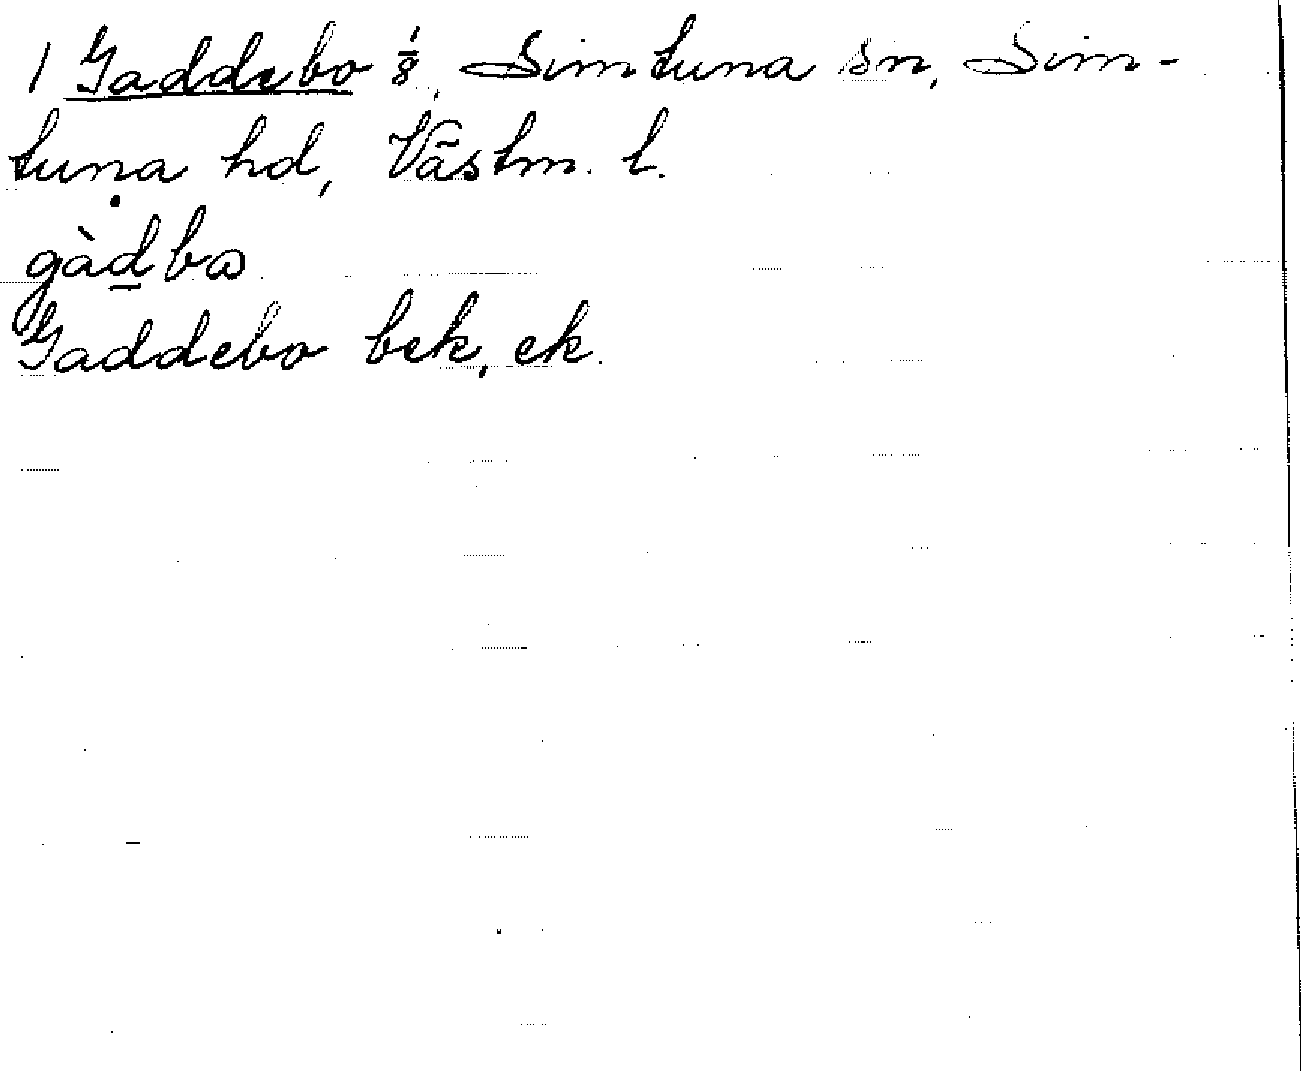 1 Gaddebo 1/8, Simtuna sn, Sim-
tuna hd, Västm. l.
gàd̲bω
Gaddebo bek, ek.